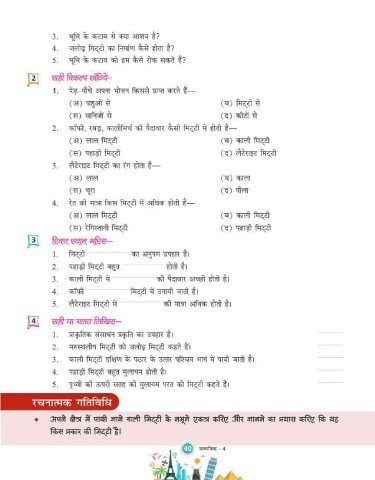 3. भूमि के कटाव से क्या आशय है?
4. जलोढ़ मिट्टी का निर्माण कैसे होता है?
5. भूमि के कटाव को हम कैसे रोक सकते हैं?
2 सही विकल्प छाँटिये–
1. पेड़-पौधे अपना भोजन किससे प्राप्त करते हैं—
(अ) पशुओं से (ब) मिट्टी से
(स) खनिजों से (द) कीटों से
2. कॉफी, रबड़, कालीमिर्च की पैदावार कैसी मिट्टी में होती है—
(अ) लाल मिट्टी (ब) काली मिट्टी
(स) पहाड़ी मिट्टी (द) लैटेराइट मिट्टी
3. लैटेराइट मिट्टी का रंग होता है—
(अ) लाल (ब) काला
(स) भूरा (द) पीला
4. रेत की मात्रा किस मिट्टी में अधिक होती है—
(अ) लाल मिट्टी (ब) काली मिट्टी
(स) रेगिस्तानी मिट्टी (द) पहाड़ी मिट्टी
3 रिक्त स्थान भरिए—
1. मिट्टी का अनुपम उपहार है।
2. पहाड़ी मिट्टी बहुत होती है।
3. काली मिट्टी में की पैदावार अच्छी होती है।
4. कॉफी मिट्टी में उगायी जाती है।
5. लैटेराइट मिट्टी में की मात्रा अधिक होती है।
4 सही या गलत लिखिए—
1. प्राकृतिक संसाधन प्रकृति का उपहार हैं।
2. मरुस्थलीय मिट्टी को जलोढ़ मिट्टी कहते हैं।
3. काली मिट्टी दक्षिण के पठार के उत्तर पश्चिम भाग में पायी जाती हैं।
4. पहाड़ी मिट्टी बहुत मुलायम होती है।
5. पृथ्वी की ऊपरी सतह की मुलायम परत को मिट्टी कहते हैं।
रचनात्मक गतिविधि
अपने क्षेत्र में पायी जाने वाली मिट्टी के नमूने एकत्र करिए और जानने का प्रयास करिए कि यह
किस प्रकार की मिट्टी है।
40 सामाजिक - 4